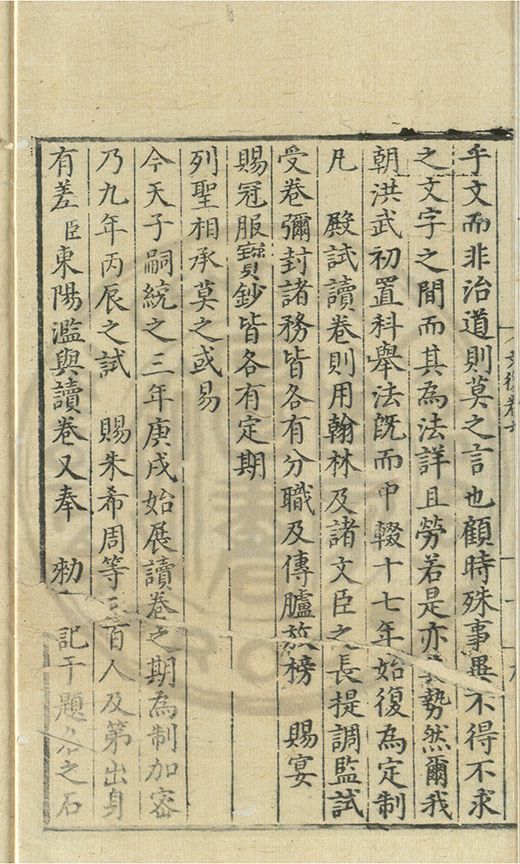 乎文而非治道則莫之言也顧時殊事異不得不求
之文字之間而其為法詳且勞若是亦勢然爾我
朝洪武初置科舉法既而中輟十七年始復為定制
凡　殿試讀卷則用翰林及諸文臣之長提調監試
受卷彌封諸務皆各有分職及傳臚放榜　賜宴
賜冠服寶鈔皆各有定期
列聖相承莫之或易
今天子嗣統之三年庚戌始展讀卷之期為制加密
乃九年丙辰之試　賜朱希周等三百人及第出身
有差臣東陽濫與讀卷又奉　勑記于題名之石